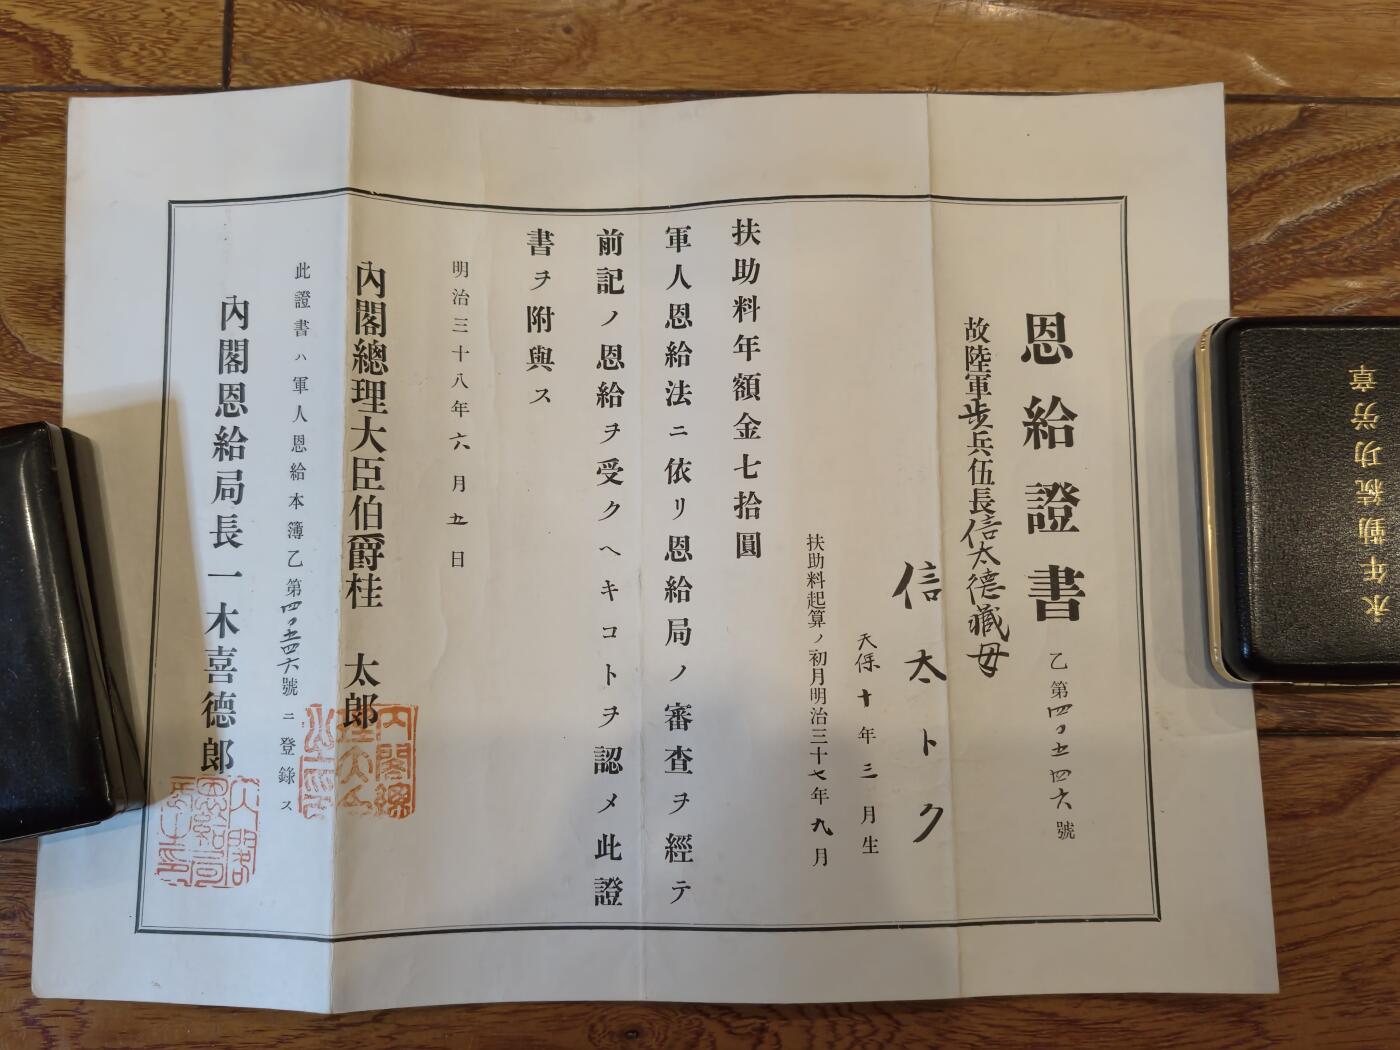 恩給證書
乙第四〇五四六號
故陸軍步兵伍長信太德藏母
信太トク
天保十年三月生
扶助料起算ノ初月明治三十七年九月
扶助料年額金七拾圓
軍人恩給法ニ依リ恩給局ノ審查ヲ經テ
前記ノ恩給ヲ受クヘキコトヲ認メ此證
書ヲ附與ス
明治三十八年六月五日
內閣總理大臣伯爵桂 太郎
此證書ハ軍人恩給本簿乙第四〇五四六號ニ登錄ス
內閣恩給局長一木喜德郎
永年勤続功労章